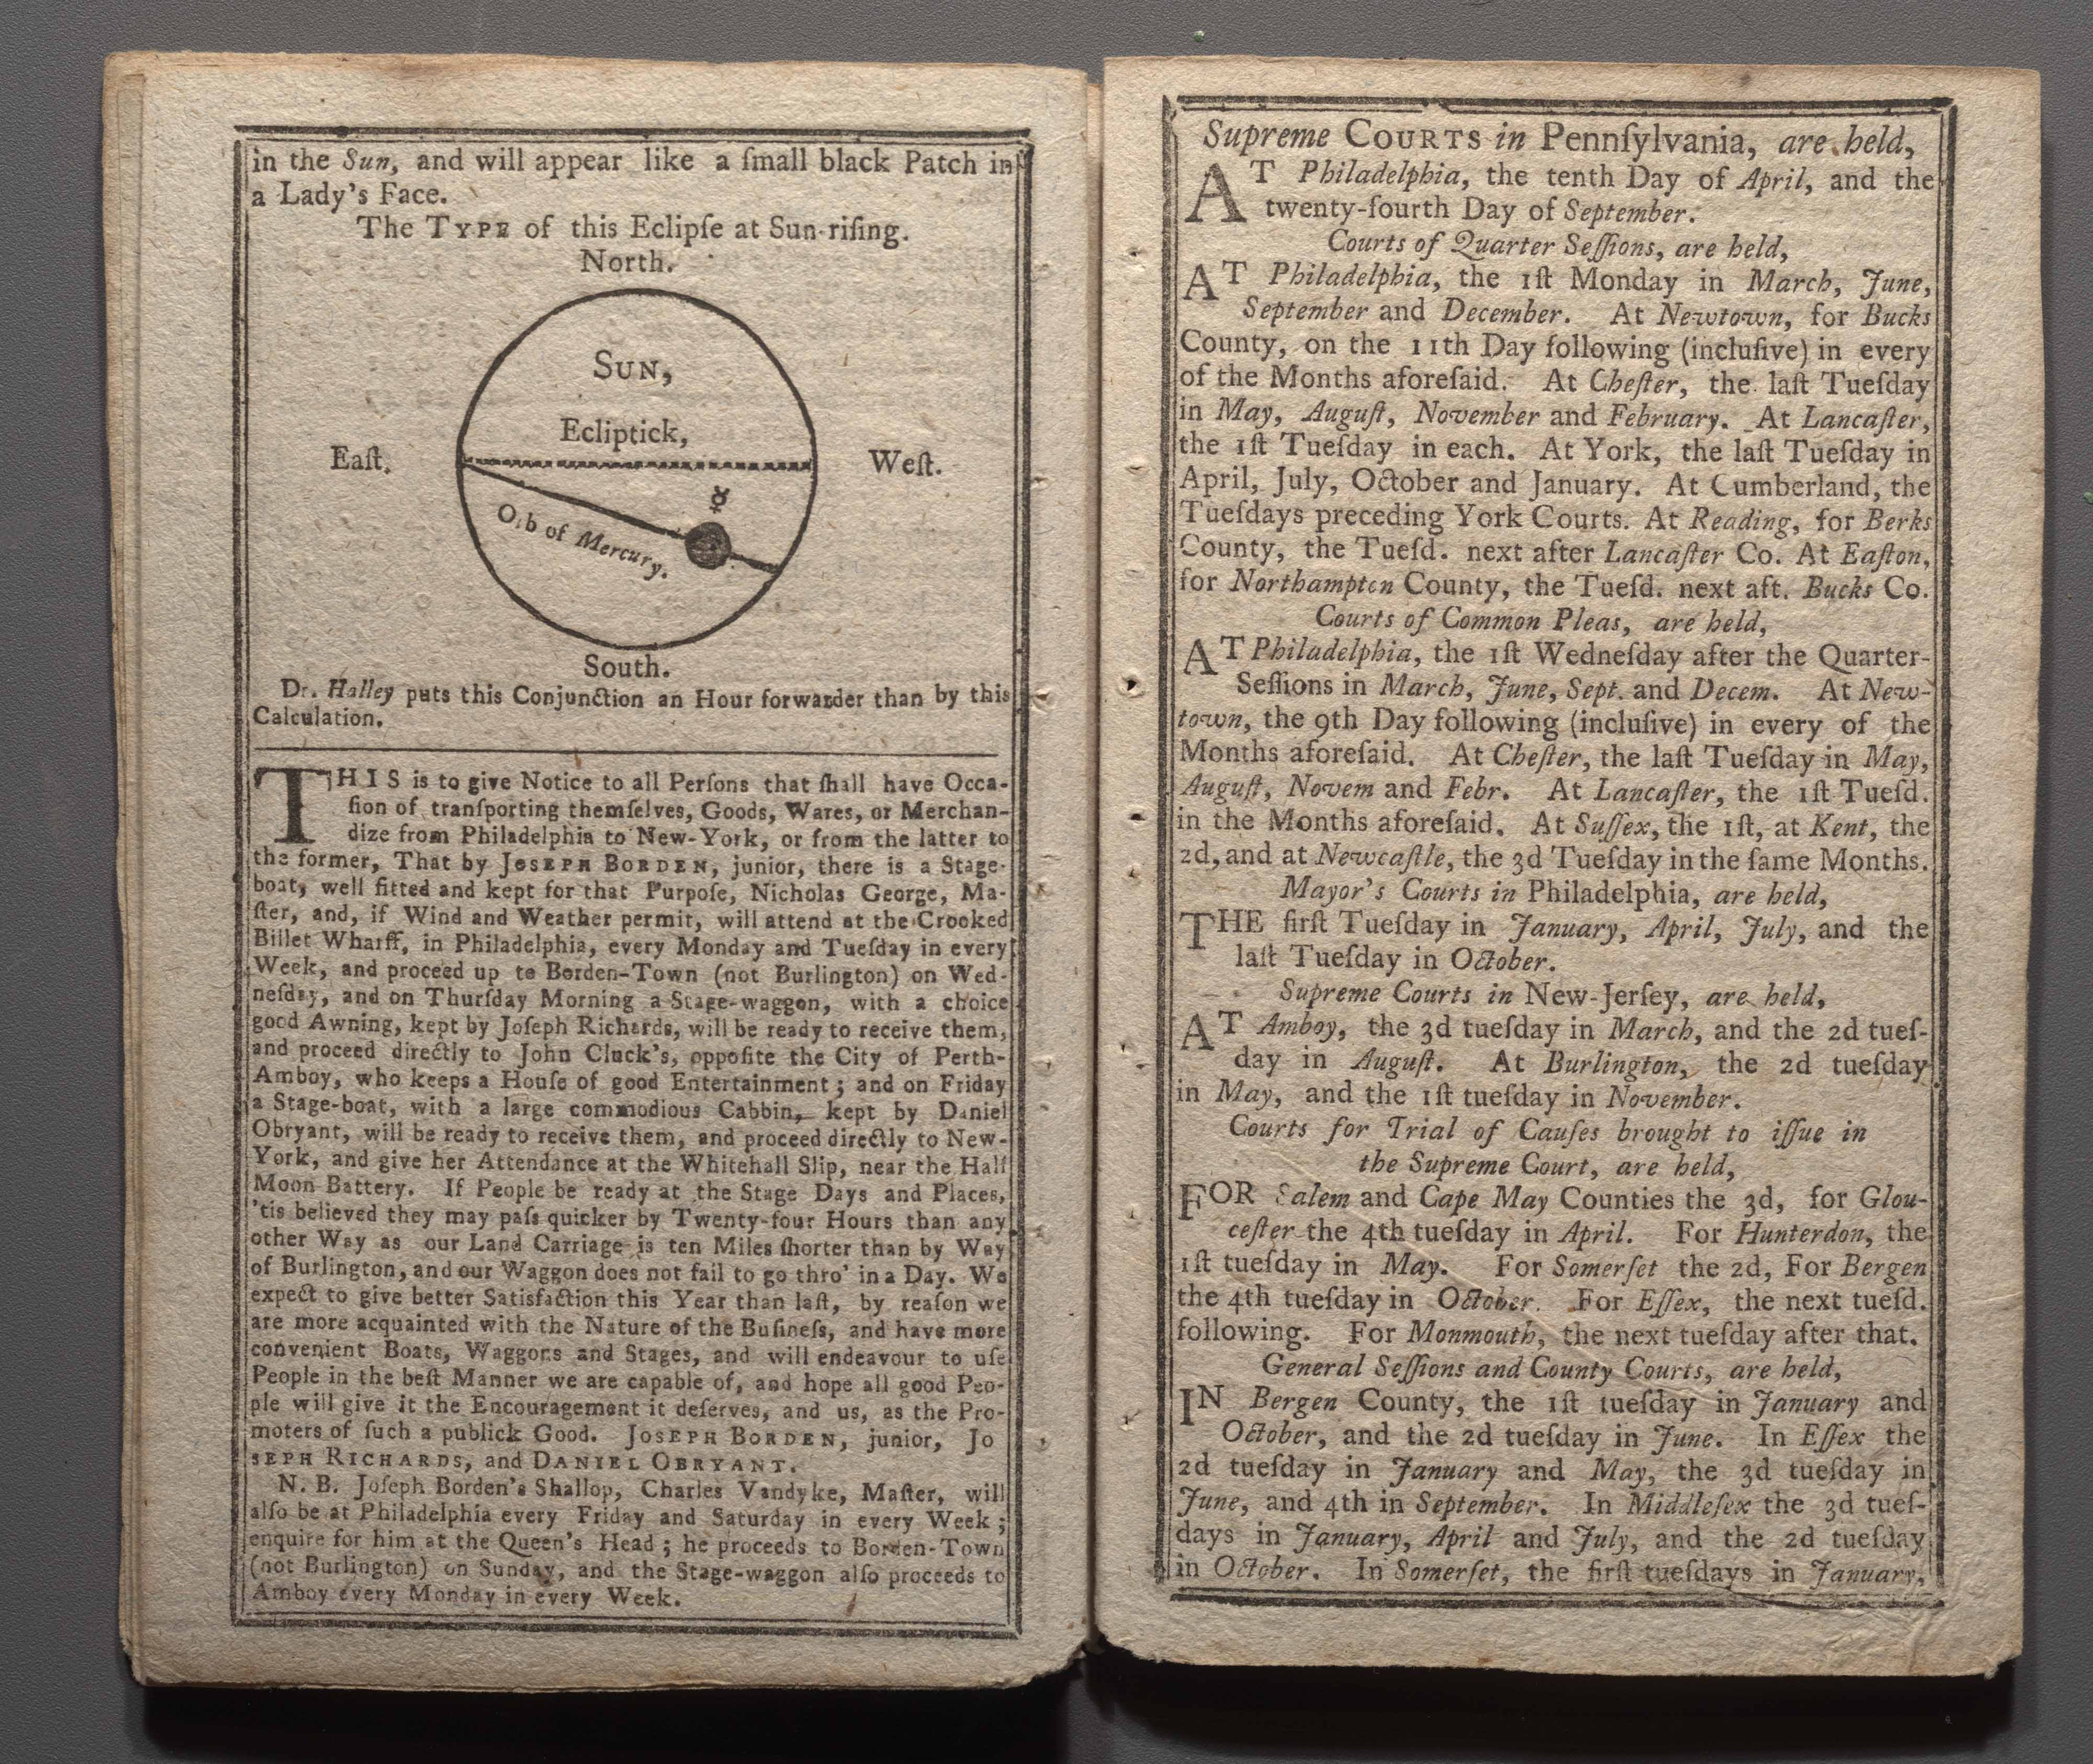 in the Sun, and will appear like a ſmall black Patch in
a Lady's Face.
The TYPE of this Eclipſe at Sun-riſing.
North.
SUN,
Ecliptick,
Eaſt.
Weſt.
☿
Orb of Mercury.
South.
Dr. Halley puts this Conjunction an Hour forwarder than by this
Calculation.
THIS is to give Notice to all Perſons that ſhall have Occa-
ſion of tranſporting themſelves, Goods, Wares, or Merchan-
dize from Philadelphia to New-York, or from the latter to
the former, That by JOSEPH BORDEN, junior, there is a Stage-
boat, well fitted and kept for that Purpoſe, Nicholas George, Ma-
ſter, and, if Wind and Weather permit, will attend at the Crooked
Billet Wharff, in Philadelphia, every Monday and Tueſday in every
Week, and proceed up to Borden-Town (not Burlington) on Wed-
neſday, and on Thurſday Morning a Stage-waggon, with a choice
good Awning, kept by Joſeph Richards, will be ready to receive them,
and proceed directly to John Cluck's, oppoſite the City of Perth-
Amboy, who keeps a Houſe of good Entertainment; and on Friday
a Stage-boat, with a large commodious Cabbin, kept by Daniel
Obryant, will be ready to receive them, and proceed directly to New-
York, and give her Attendance at the Whitehall Slip, near the Half
Moon Battery. If People be ready at the Stage Days and Places,
'tis believed they may paſs quicker by Twenty-four Hours than any
other Way as our Land Carriage is ten Miles ſhorter than by Way
of Burlington, and our Waggon does not fail to go thro' in a Day. We
expect to give better Satisfaction this Year than laſt, by reaſon we
are more acquainted with the Nature of the Buſineſs, and have more
convenient Boats, Waggons and Stages, and will endeavour to uſe
People in the beſt Manner we are capable of, and hope all good Peo-
ple will give it the Encouragement it deſerves, and us, as the Pro-
moters of ſuch a publick Good. JOSEPH BORDEN, junior, JO
SEPH RICHARDS, and DANIEL OBRYANT.
N. B. Joſeph Borden's Shallop, Charles Vandyke, Maſter, will
alſo be at Philadelphia every Friday and Saturday in every Week;
enquire for him at the Queen's Head; he proceeds to Borden-Town
(not Burlington) on Sunday, and the Stage-waggon alſo proceeds to
Amboy every Monday in every Week.
Supreme COURTS in Pennſylvania, are held,
AT Philadelphia, the tenth Day of April, and the
twenty-fourth Day of September.
Courts of Quarter Seſſions, are held,
AT Philadelphia, the 1ſt Monday in March, June,
September and December. At Newtown, for Bucks
County, on the 11th Day following (incluſive) in every
of the Months aforeſaid. At Cheſter, the laſt Tueſday
in May, Auguſt, November and February. At Lancaſter,
the 1ſt Tueſday in each. At York, the laſt Tueſday in
April, July, October and January. At Cumberland, the
Tueſdays preceding York Courts. At Reading, for Berks
County, the Tueſd. next after Lancaſter Co. At Eaſton,
for Northampton County, the Tueſd. next aft. Bucks Co.
Courts of Common Pleas, are held,
AT Philadelphia, the 1ſt Wedneſday after the Quarter-
Seſſions in March, June, Sept. and Decem. At New-
town, the 9th Day following (incluſive) in every of the
Months aforeſaid. At Cheſter, the laſt Tueſday in May,
Auguſt, Novem and Febr. At Lancaſter, the 1ſt Tueſd.
in the Months aforeſaid. At Suſſex, the 1ſt, at Kent, the
2d, and at Newcaſtle, the 3d Tueſday in the ſame Months.
Mayor's Courts in Philadelphia, are held,
THE firſt Tueſday in January, April, July, and the
laſt Tueſday in October.
Supreme Courts in New-Jerſey, are held,
AT Amboy, the 3d tueſday in March, and the 2d tueſ-
day in Auguſt. At Burlington, the 2d tueſday
in May, and the 1ſt tueſday in November.
Courts for Trial of Cauſes brought to iſſue in
the Supreme Court, are held,
FOR Salem and Cape May Counties the 3d, for Glou-
ceſter the 4th tueſday in April. For Hunterdon, the
1ſt tueſday in May. For Somerſet the 2d, For Bergen
the 4th tueſday in October. For Eſſex, the next tueſd.
following. For Monmouth, the next tueſday after that.
General Seſſions and County Courts, are held,
IN Bergen County, the 1ſt tueſday in January and
October, and the 2d tueſday in June. In Eſſex the
2d tueſday in January and May, the 3d tueſday in
June, and 4th in September. In Middleſex the 3d tueſ-
days in January, April and July, and the 2d tueſday
in October. In Somerſet, the firſt tueſdays in January,